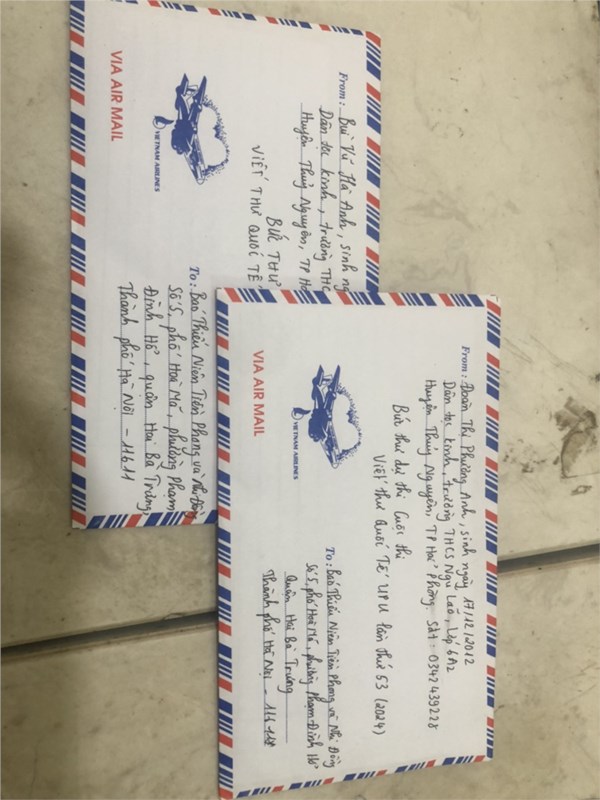 From: Bùi Vũ Hà Anh, sinh
Dân tộc kinh, trường THC
Huyện Thuỷ Nguyên, TP
BỨC THƯ
VIẾT THƯ QUỐC TẾ
VIETNAM AIRLINES
VIA AIR MAIL
To: Báo Thiếu Niên Tiền Phong và Nhi Đồng
Số 5, phố Hoà Mã, phường Phạm
Đình Hổ, quận Hai Bà Trưng,
Thành phố Hà Nội - 11611
From: Đoàn Thị Phương Anh, sinh ngày 17/12/2012
Dân tộc kinh, trường THCS Ngũ Lão, Lớp 6A2
Huyện Thuỷ Nguyên, TP Hải Phòng. Sđt: 0342439228
Bức thư dự thi Cuộc thi
Viết thư Quốc Tế UPU lần thứ 53 (2024)
VIETNAM AIRLINES
VIA AIR MAIL
To: Báo Thiếu Niên Tiền Phong và Nhi Đồng
Số 5, phố Hoà Mã, phường Phạm Đình Hổ
Quận Hai Bà Trưng
Thành phố Hà Nội -